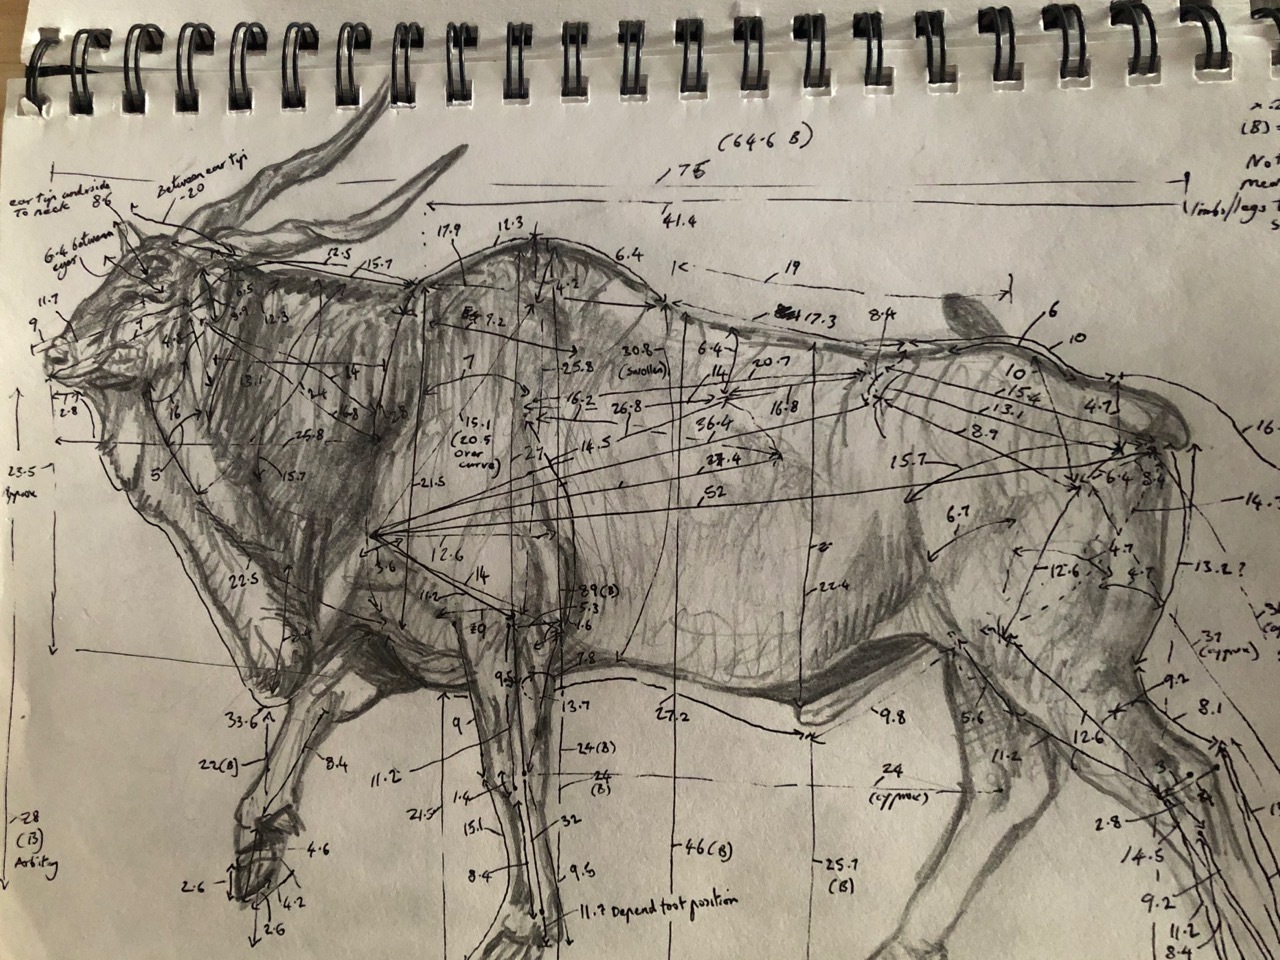 (64.6 B)
75
41.4
ear tip underside
to neck 8.6
Between ear tip
20
6.4 between
eyes
11.7
9
17.9
12.3
6.4
12.5
15.7
19
4.2
17.3
8.4
6
10
7.2
30.8
(swollen)
6.4
20.7
14
16.8
10
15.4
13.1
8.9
4.7
25.8
16.2
26.8
36.4
14.5
27.4
52
27
7
15.1
(20.5
over
curve)
21.5
12.3
13.1
14
24
16
25.8
15.7
5
2.8
23.5
Approx
22.5
12.6
14
11.2
3.6
89(B)
5.3
1.6
7.8
22.4
15.7
6.7
6.4
8.4
4.7
4.7
12.6
13.2?
31
(approx)
9.2
8.1
33.6
22(B)
8.4
9
11.2
13.7
27.2
9.8
5.6
11.2
12.6
24(B)
24
(B)
24
(approx)
1.4
21.5
15.1
32
8.4
9.5
46(B)
25.7
(B)
28
(B)
Arbitary
4.6
2.6
4.2
2.6
11.7 Depend foot position
3
2.8
14.5
9.2
11.2
8.4
(B)
Not
mea
limbs/legs